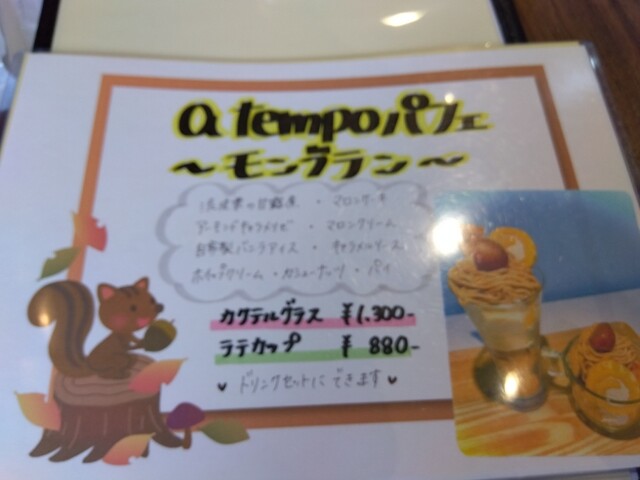 a tempoパフェ
～モンブラン～
渋皮栗の甘露煮・マロンケーキ
アーモンドキャラメイゼ・マロンクリーム
自家製バニラアイス・キャラメルソース
ホイップクリーム・カシューナッツ・パイ
カクテルグラス ¥1,300-
ラテカップ ¥ 880-
♥ ドリンクセットにできます ♥